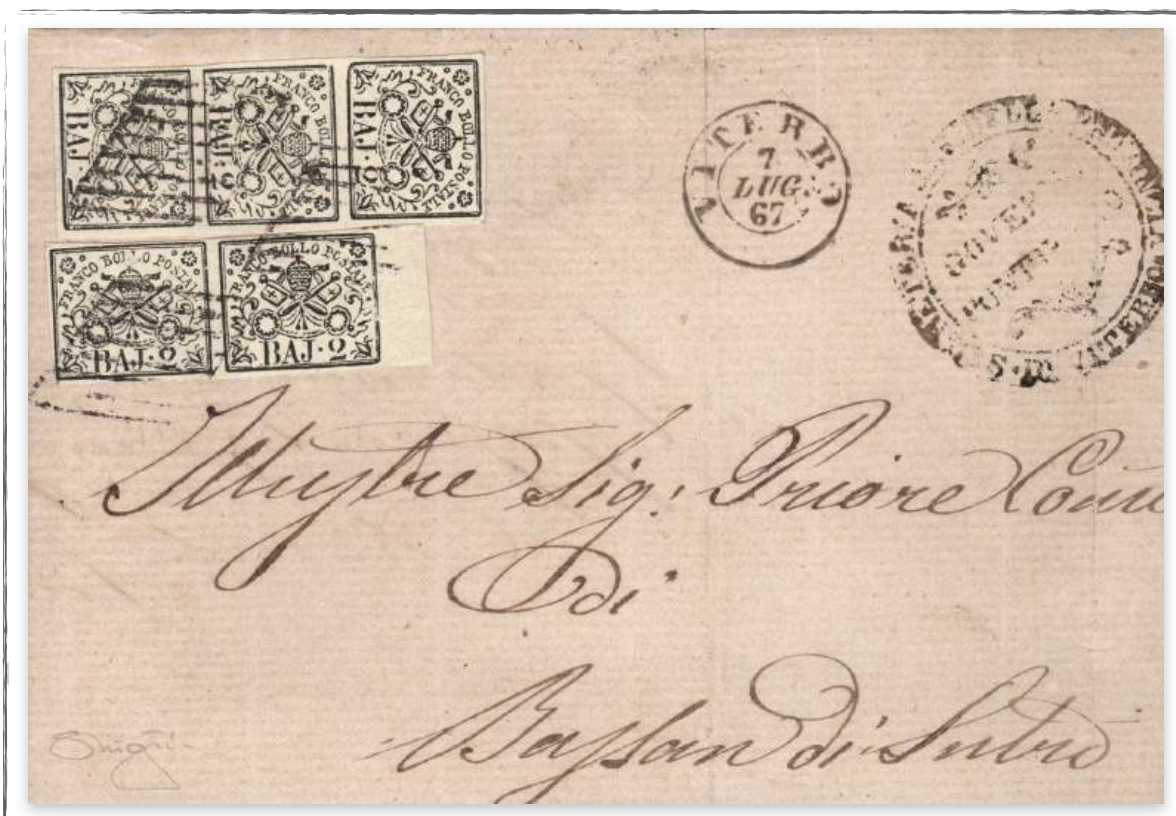 FRANCO BOLLO POSTALE
BAJ
FRANCO BOLLO POSTALE
BAJ·2
FRANCO BOLLO POSTALE
BAJ·2
FRANCO BOLLO POSTALE
BAJ·2
FRANCO BOLLO POSTALE
BAJ·2
VITERBO
7
LUG
67
VITERBO
Illustre Sig: Priore Comu
Di
Bassan di Sutri